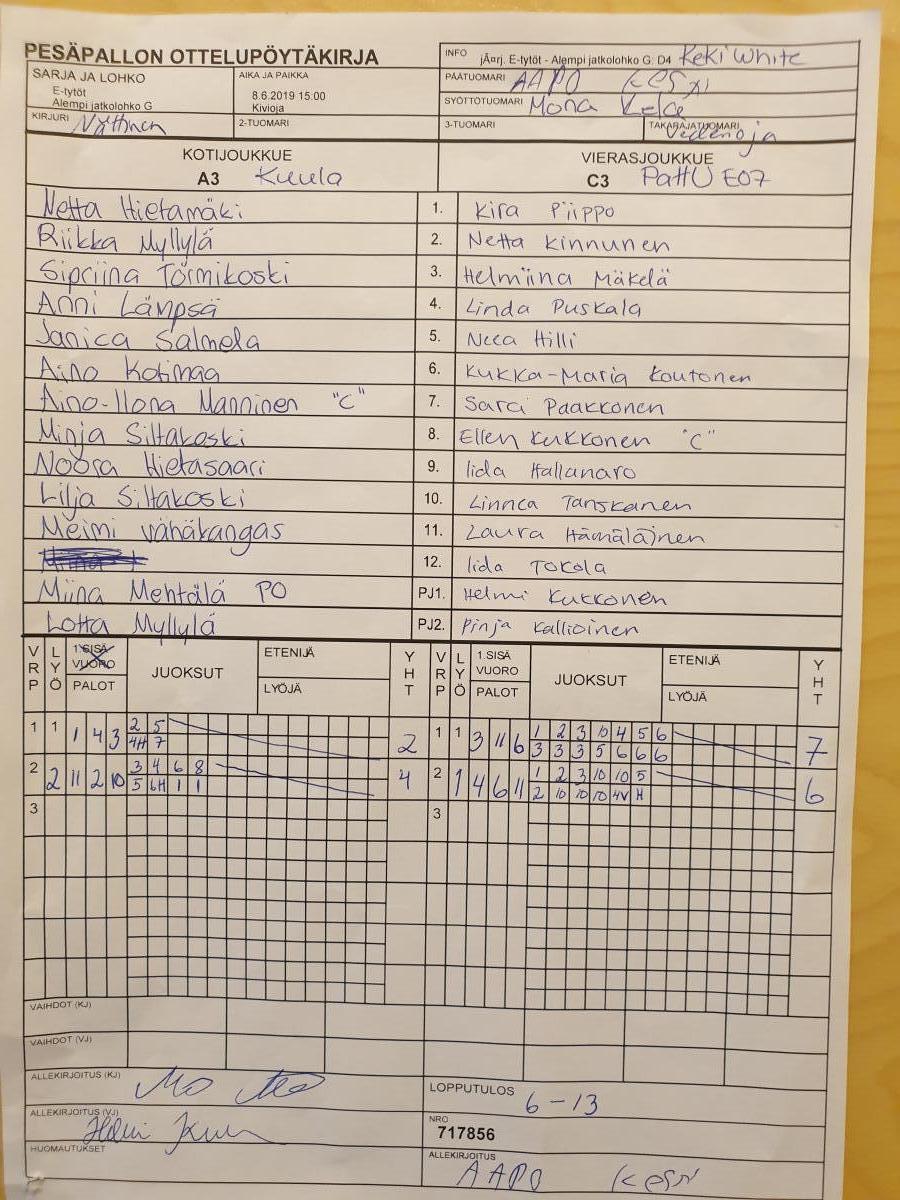 PESÄPALLON OTTELUPÖYTÄKIRJA
INFO jÃ¤rj. E-tytöt - Alempi jatkolohko G: D4 Keki White
SARJA JA LOHKO
E-tytöt
Alempi jatkolohko G
AIKA JA PAIKKA
8.6.2019 15:00
Kivioja
PÄÄTUOMARI AAPO
SYÖTTÖTUOMARI Mona
KIRJURI
2-TUOMARI
3-TUOMARI
TAKARAJATUOMARI
KOTIJOUKKUE
A3 Kuula
VIERASJOUKKUE
C3 PattU E07
Netta Hietamäki 1. Kira Piippo
Riikka Myllylä 2. Netta Kinnunen
Sipriina Törmikoski 3. Helmiina Mäkelä
Anni Lämpsä 4. Linda Puskala
Janica Salmela 5. Neea Hilli
Aino Kotimaa 6. Kukka-Maria Koutonen
Aino-Ilona Manninen "C" 7. Sara Paakkonen
Minja Siltakoski 8. Ellen Kukkonen "C"
Noora Hietasaari 9. Iida Hallanaro
Lilja Siltakoski 10. Linnea Tanskanen
Meimi Vähäkangas 11. Laura Hämäläinen
12. Iida Tokola
Miina Mehtälä PO PJ1. Helmi Kukkonen
Lotta Myllylä PJ2. Pinja Kallioinen
VRP LYÖ 1.SISÄ VUORO PALOT JUOKSUT ETENIJÄ LYÖJÄ YHT VRP LYÖ 1.SISÄ VUORO PALOT JUOKSUT ETENIJÄ LYÖJÄ YHT
1 1 1 4 3 2 5 2 1 1 3 11 6 1 2 3 10 4 5 6 7
4H 7 3 3 3 5 6 6 6
2 2 11 2 10 3 4 6 8 4 2 1 4 6 11 1 2 3 10 10 5 6
5 6H 1 1 2 10 10 10 4V H
3 3
VAIHDOT (KJ)
VAIHDOT (VJ)
ALLEKIRJOITUS (KJ)
LOPPUTULOS 6-13
ALLEKIRJOITUS (VJ)
NRO
717856
HUOMAUTUKSET
ALLEKIRJOITUS AAPO